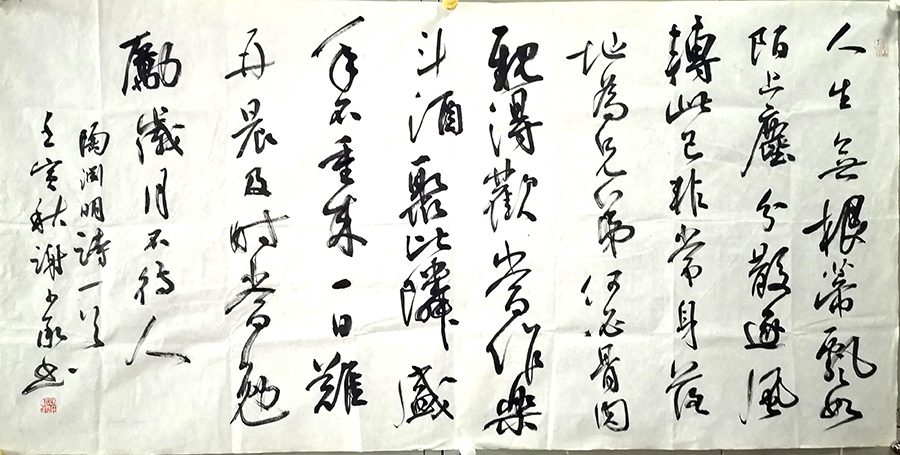 人生無根蒂飄如
陌上塵分散逐風
轉此已非常身落
地為兄弟何必骨肉
親得歡當作樂
斗酒聚比隣盛
年不重来一日難
再晨及时當勉
勵歲月不待人
陶渊明詩一首
壬寅秋謝少书